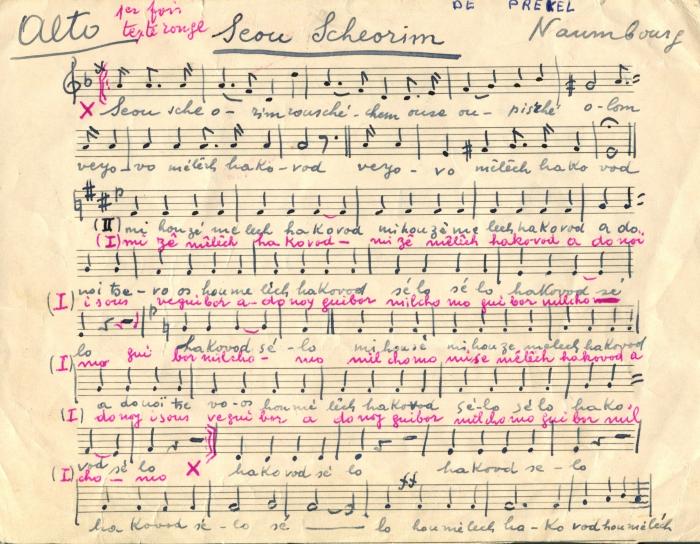 Alto 1er fois texte rouge Seou Scheorim DE PREKEL Naumbourg
Seou sche o- rim vousché-chem ouse ou- pisché o-lom
veyo-vo mêlêch hako-vod veyo-vo mêlêch hako vod
(II) mi houzé me lech ha kovod mi houzé me lech ha kovod a do.
(I) mi zê mêlech ha kovod- mi zê mêlech hakovod a do noi
noi tse-vo os hou me lêch hakovod sé lo sé lo hakovod sé
(I) i sous veguibor a-do noy guibor milcho mo gui bor milcho
lo hakovod sé-lo mi housé mi houze melech hakovod
(I) mo gui bor milcho- mo mil cho mo mi se mêlêch hakovod a
a do noi tse vo-os hou mé lêch hakovod sé-lo sé lo hako
(I) do noy i sous ve gui bor a do noy guibor mil cho mo gui bor mil
vod sé lo hako vod sé lo ha kovod se-lo
(I) cho-mo
ff
ha kovod sé-lo sé lo hou mêlech ha-ko vod hou mélech